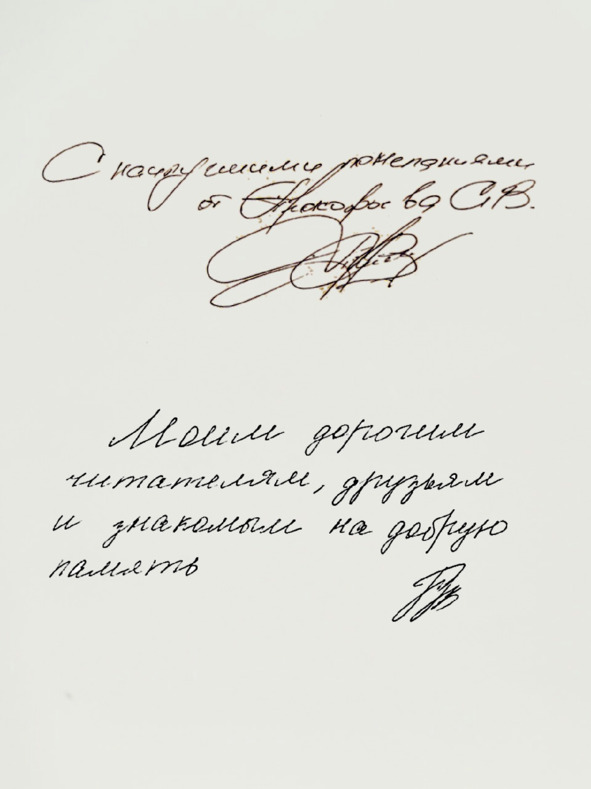 С наилучшими пожеланиями
от Прокофьева С.В.
Моим дорогим
читателям, друзьям
и знакомым на добрую
память